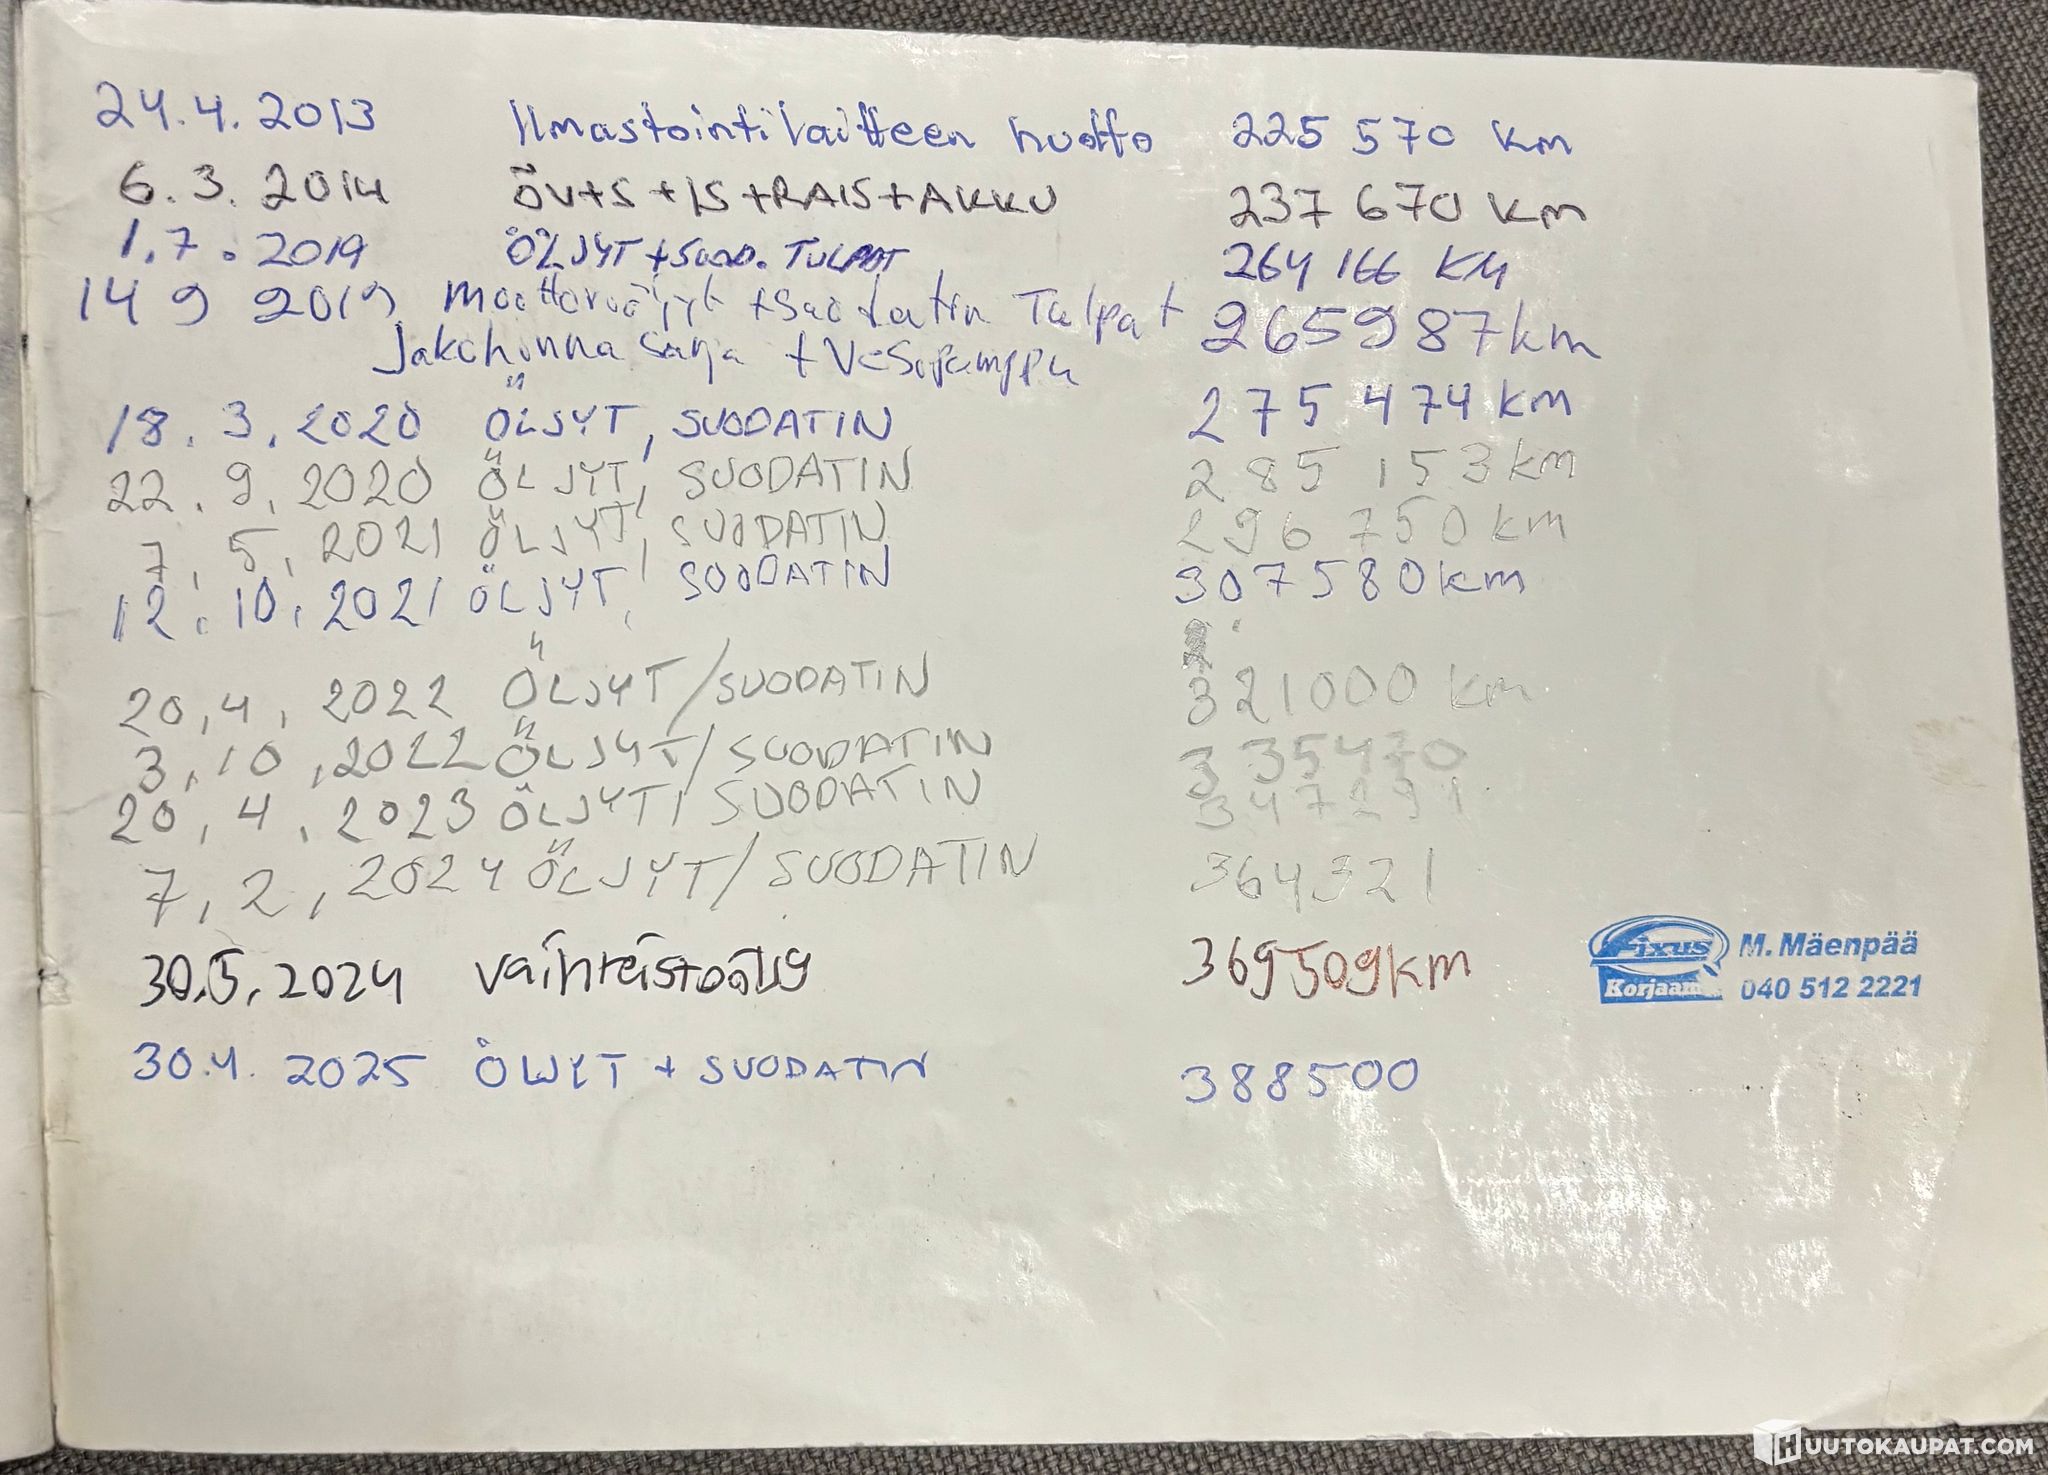 24.4.2013 Ilmastointilaitteen huolto 225 570 km
6.3.2014 ÖV+S+IS+RAIS+AKKU 237 670 km
1.7.2019 ÖLJYT+SUOD. TULPAT 264 166 KM
14 9 2019 moottoriöljyt +suodatin Tulpat 265987km
Jakohihnasarja + Vesipumppu
18.3.2020 ÖLJYT, SUODATIN 275 474 km
22.9.2020 ÖLJYT, SUODATIN 285 153 km
7.5.2021 ÖLJYT, SUODATIN 296 750 km
12.10.2021 ÖLJYT, SUODATIN 307580km
20.4.2022 ÖLJYT/SUODATIN 321000 km
3.10.2022 ÖLJYT/SUODATIN 335470
20.4.2023 ÖLJYT/SUODATIN 347291
7.2.2024 ÖLJYT/SUODATIN 364321
30.5.2024 vaihteistoöljy 369509km
Fixus M. Mäenpää
Korjaamo 040 512 2221
30.4.2025 ÖLJYT + SUODATIN 388500
HUUTOKAUPAT.COM